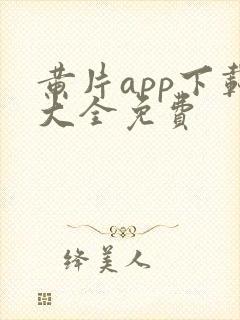 黄片app下载
大全免费
绛美人